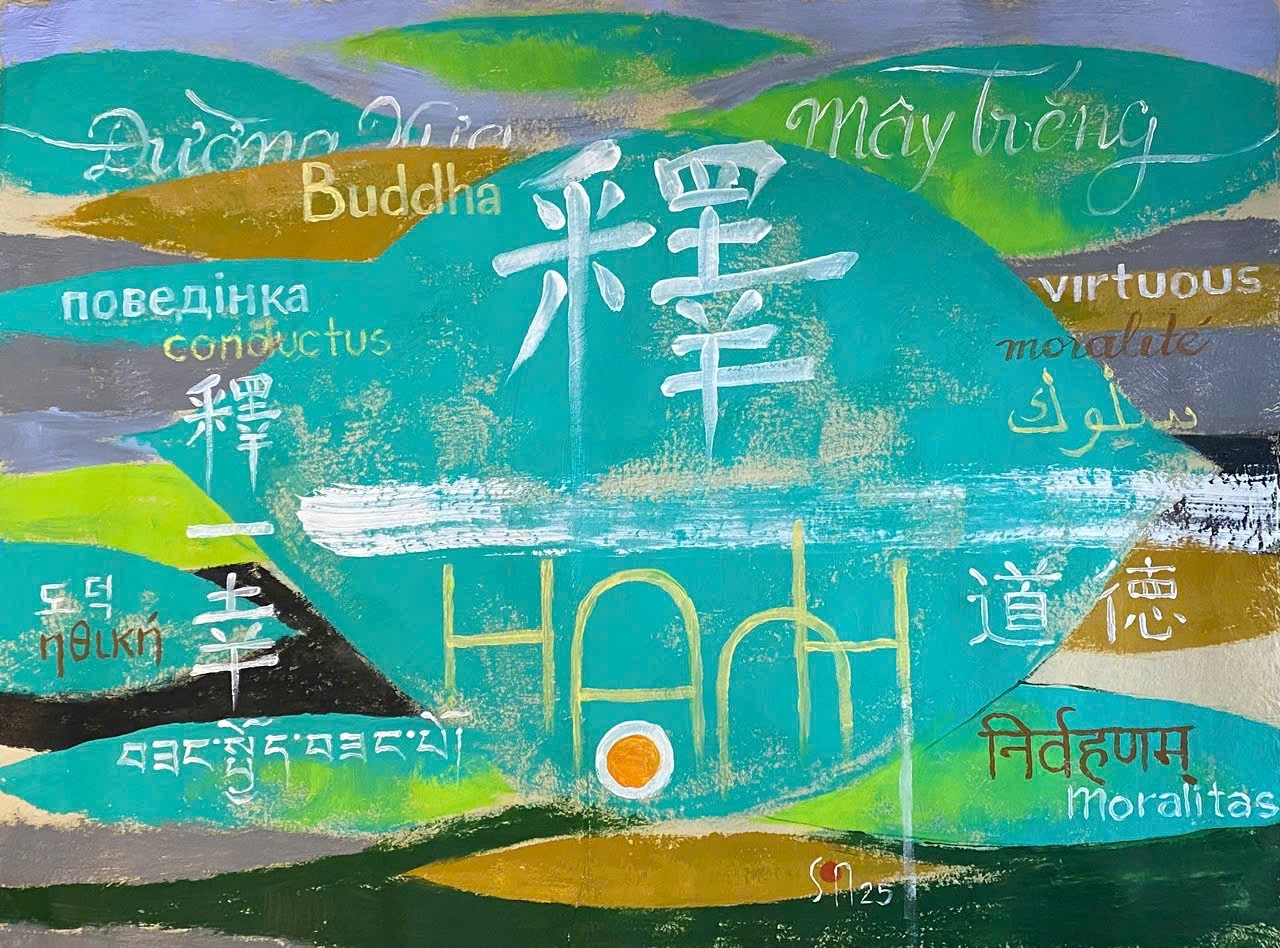 Đường Xưa
Mây Trắng
Buddha
釋
поведінка
conductus
virtuous
moralité
سلوك
釋
一
幸
HẠNH
도덕
ηθική
道徳
निर्वहणम्
moralitas
25